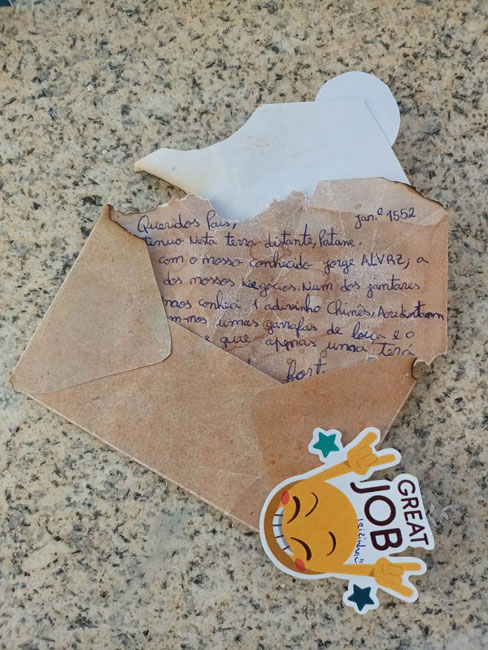 Queridos Pais,
Jan.º 1552
tenuo nesta terra distante, Patane.
com o nosso conhecido Jorge ALVRZ; a
dos nossos negócios. Num dos jantares
conheci 1 adivinho Chinês, Acreditam
umas garrafas de loiça e o
e que apenas uma terá
GREAT
JOB